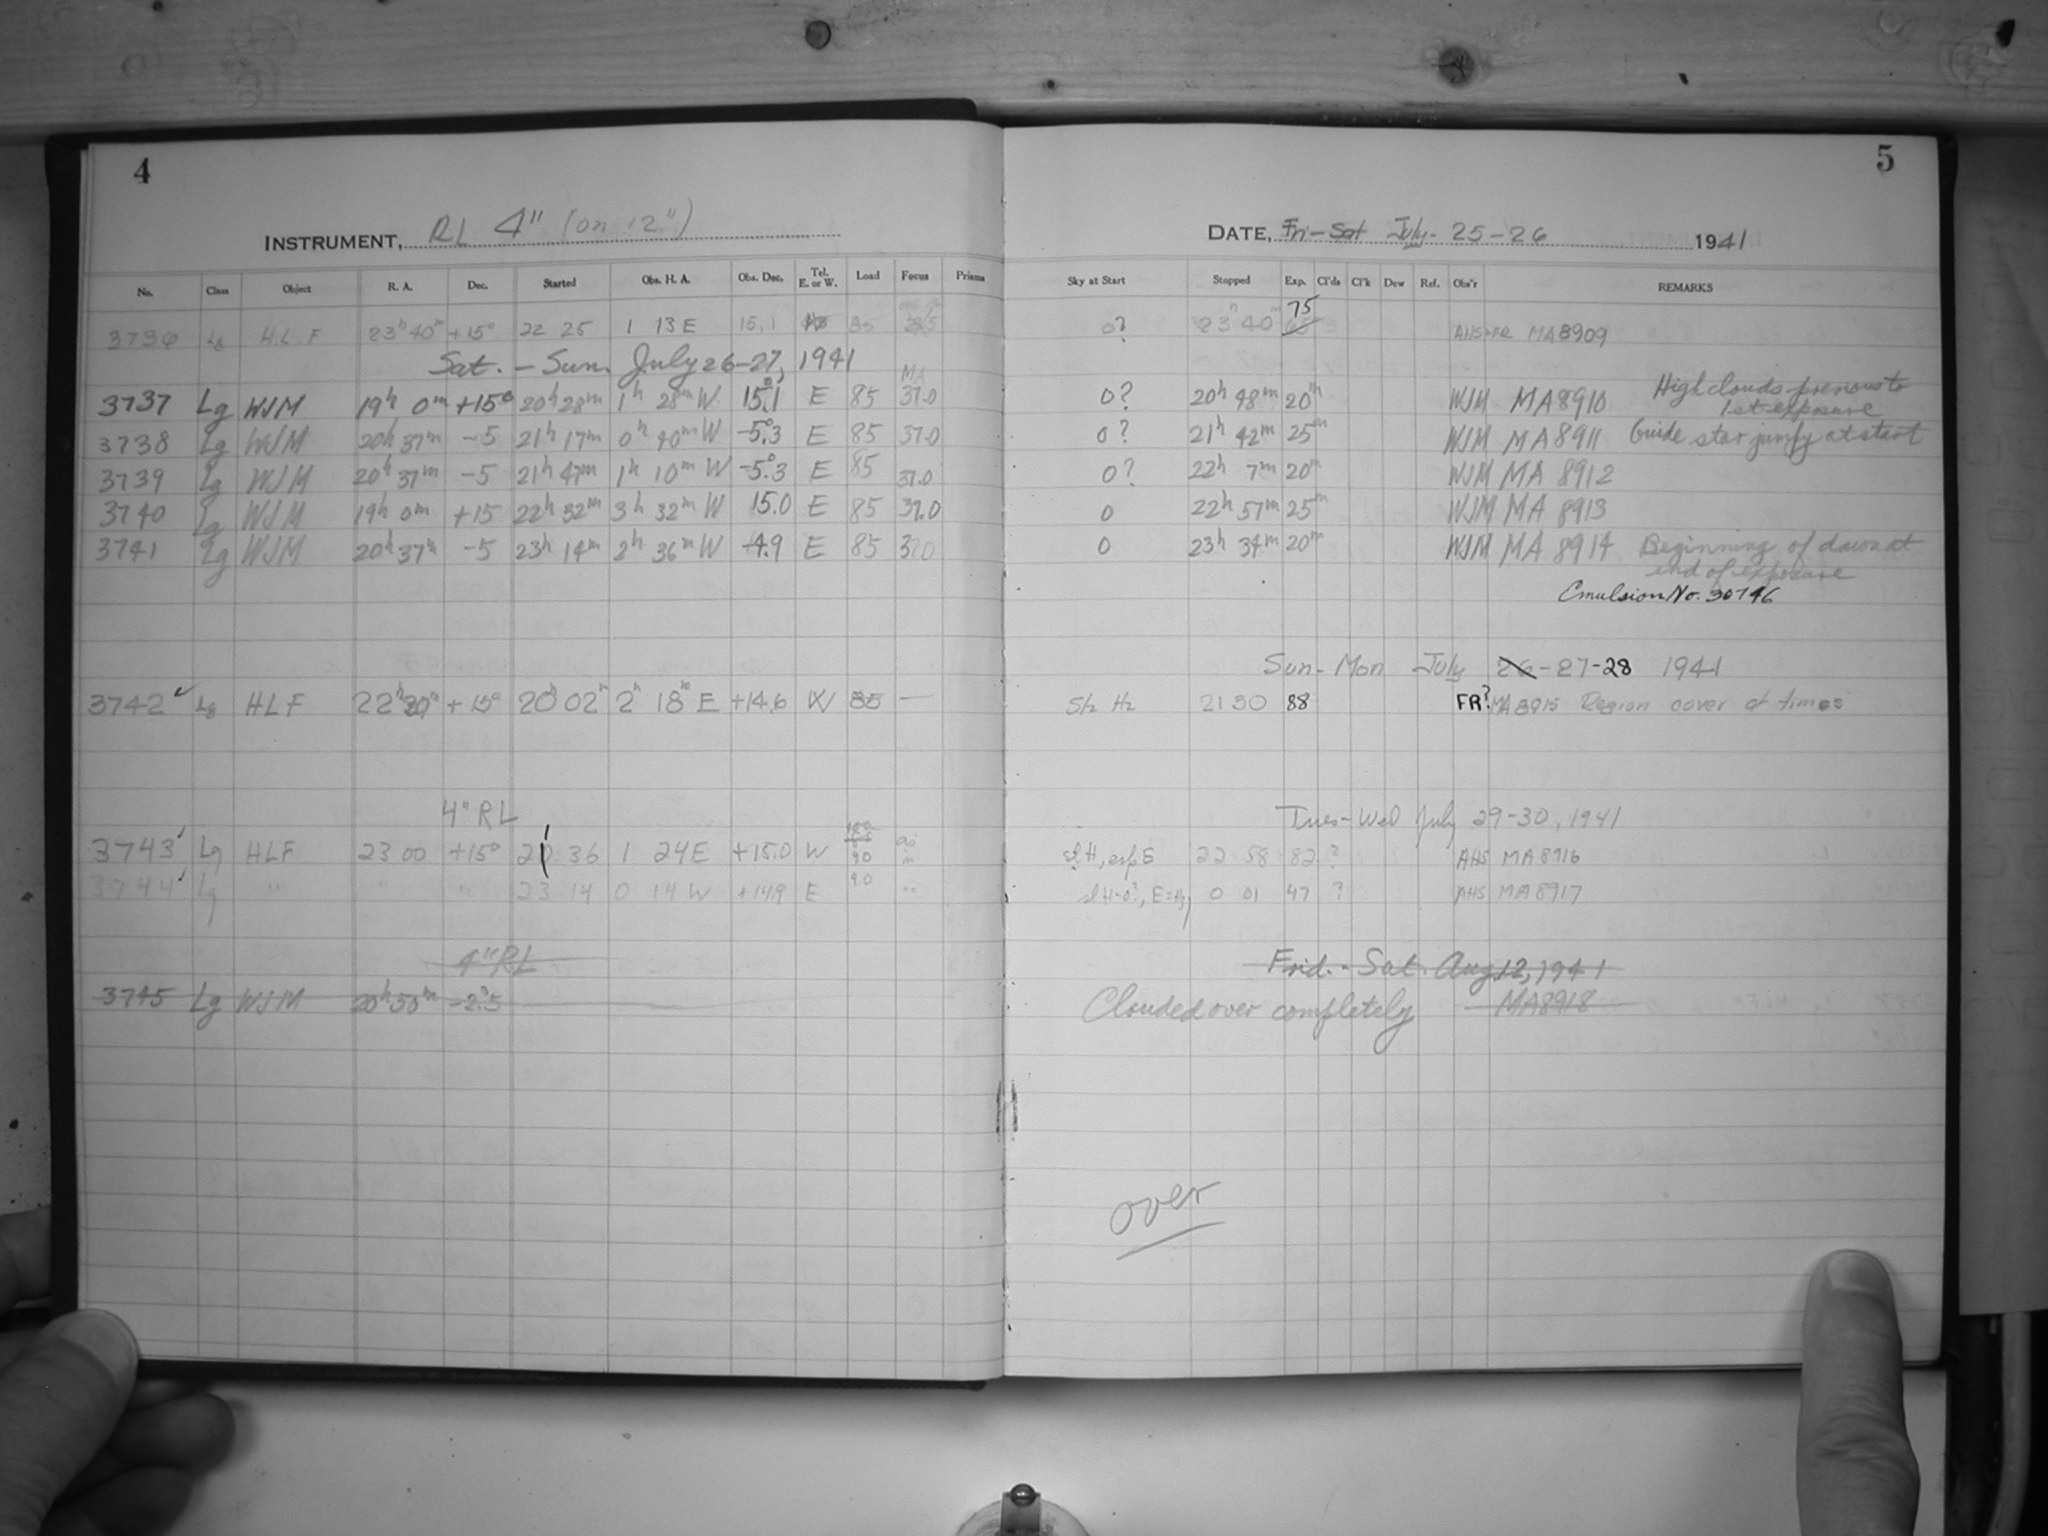 4
5
INSTRUMENT, RL 4" (on 12")
DATE, Fri-Sat July- 25-26 1941
No. Class Object R. A. Dec. Started Obs. H. A. Obs. Dec. Tel. E. or W. Load Focus Prisms Sky at Start Stopped Exp. Cl'ds Cl'k Dew Ref. Obs'r REMARKS
75
3736 Lg H L F 23h 40m +15° 22 25 1 13 E 15.1 85 0? 23h 40m AHS+FR MA8909
Sat. - Sun. July 26-27, 1941
3737 Lg WJM 19h 0m +15° 20h 28m 1h 28m W 15.°1 E 85 37.0 0? 20h 48m 20m WJM MA8910 High clouds previous to
1st exposure
3738 Lg WJM 20h 37m -5 21h 17m 0h 40m W -5.°3 E 85 37.0 0? 21h 42m 25m WJM MA8911 Guide star jumpy at start
3739 Lg WJM 20h 37m -5 21h 47m 1h 10m W -5.°3 E 85 37.0 0? 22h 7m 20m WJM MA 8912
3740 Lg WJM 19h 0m +15 22h 32m 3h 32m W 15.0 E 85 37.0 0 22h 57m 25m WJM MA 8913
3741 Lg WJM 20h 37m -5 23h 14m 2h 36m W -4.9 E 85 37.0 0 23h 34m 20m WJM MA 8914 Beginning of dawn at
end of exposure
Emulsion No. 30746
Sun-Mon July 26-27-28 1941
3742 Lg HLF 22h 20m +15° 20h 02m 2h 18m E +14.6 W 85 — Slt Hz 21 30 88 FR? MA8915 Region cover d times
4" RL
Tues-Wed July 29-30, 1941
3743 Lg HLF 23 00 +15° 21 36 1 24 E +15.0 W 90 sl H, esp E 22 58 82 ? AHS MA8916
3744 Lg " " " 23 14 0 14 W +14.9 E 90 " sl H-0?, E=Hz 0 01 47 ? AHS MA8917
4" RL
Frid. - Sat. Aug 1 2, 1941
3745 Lg WJM 20h 50m -2.°5 Clouded over completely MA8918
over